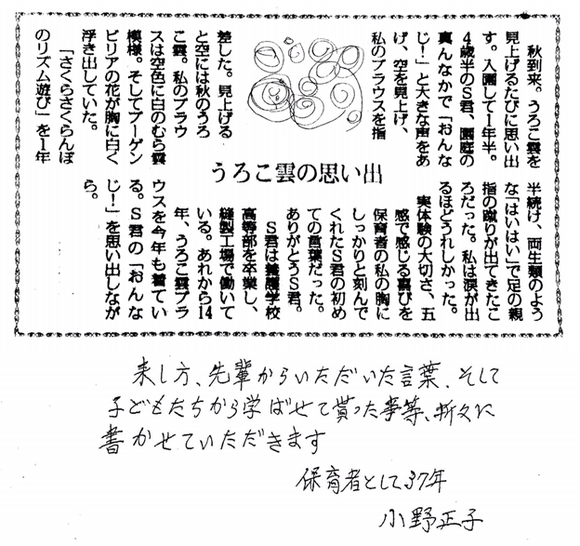 うろこ雲の思い出
秋到来。うろこ雲を
見上げるたびに思い出
す。入園して1年半。
4歳半のS君、園庭の
真んなかで「おんな
じ!」と大きな声をあ
げ、空を見上げ、
私のブラウスを指
差した。見上げる
と空には秋のうろ
こ雲。私のブラウ
スは空色に白のむら雲
模様。そしてブーゲン
ビリアの花が胸に白く
浮き出していた。
「さくらさくらんぼ
のリズム遊び」を1年
半続け、両生類のよう
な「はいはい」で足の親
指の蹴りが出てきたこ
ろだった。私は涙が出
るほどうれしかった。
実体験の大切さ、五
感で感じる喜びを
保育者の私の胸に
しっかりと刻んで
くれたS君の初め
ての言葉だった。
ありがとうS君。
S君は養護学校
高等部を卒業し、
縫製工場で働いて
いる。あれから14
年、うろこ雲ブラ
ウスを今年も着てい
る。S君の「おんな
じ!」を思い出しなが
ら。
来し方、先輩からいただいた言葉、そして
子どもたちから学ばせて貰った事等、折々に
書かせていただきます
保育者として37年
小野正子